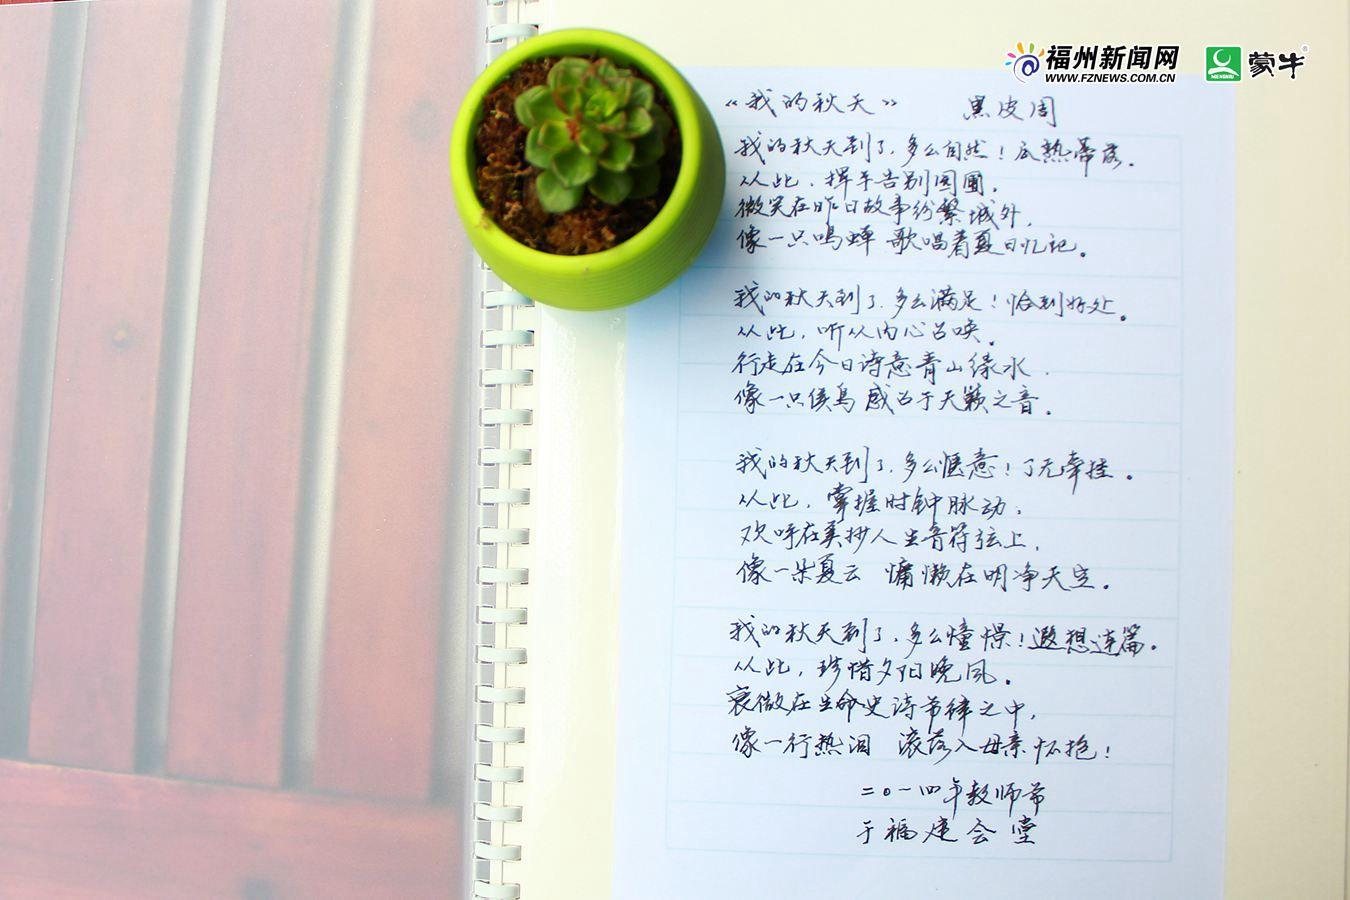 福州新闻网
WWW.FZNEWS.COM.CN
MENGNIU
蒙牛
《我的秋天》 黑皮周
我的秋天到了，多么自然！瓜熟蒂落。
从此，挥手告别园圃，
微笑在昨日故事纷繁城外，
像一只鸣蝉 歌唱着夏日忆记。
我的秋天到了，多么满足！恰到好处。
从此，听从内心召唤。
行走在今日诗意青山绿水，
像一只候鸟 感召于天籁之音。
我的秋天到了，多么惬意！了无牵挂。
从此，掌握时钟脉动，
欢呼在美妙人生音符弦上，
像一朵夏云 慵懒在明净天空。
我的秋天到了，多么憧憬！遐想连篇。
从此，珍惜夕阳晚风。
衰微在生命史诗节律之中，
像一行热泪 滚落入母亲怀抱！
二〇一四年教师节
于福建会堂